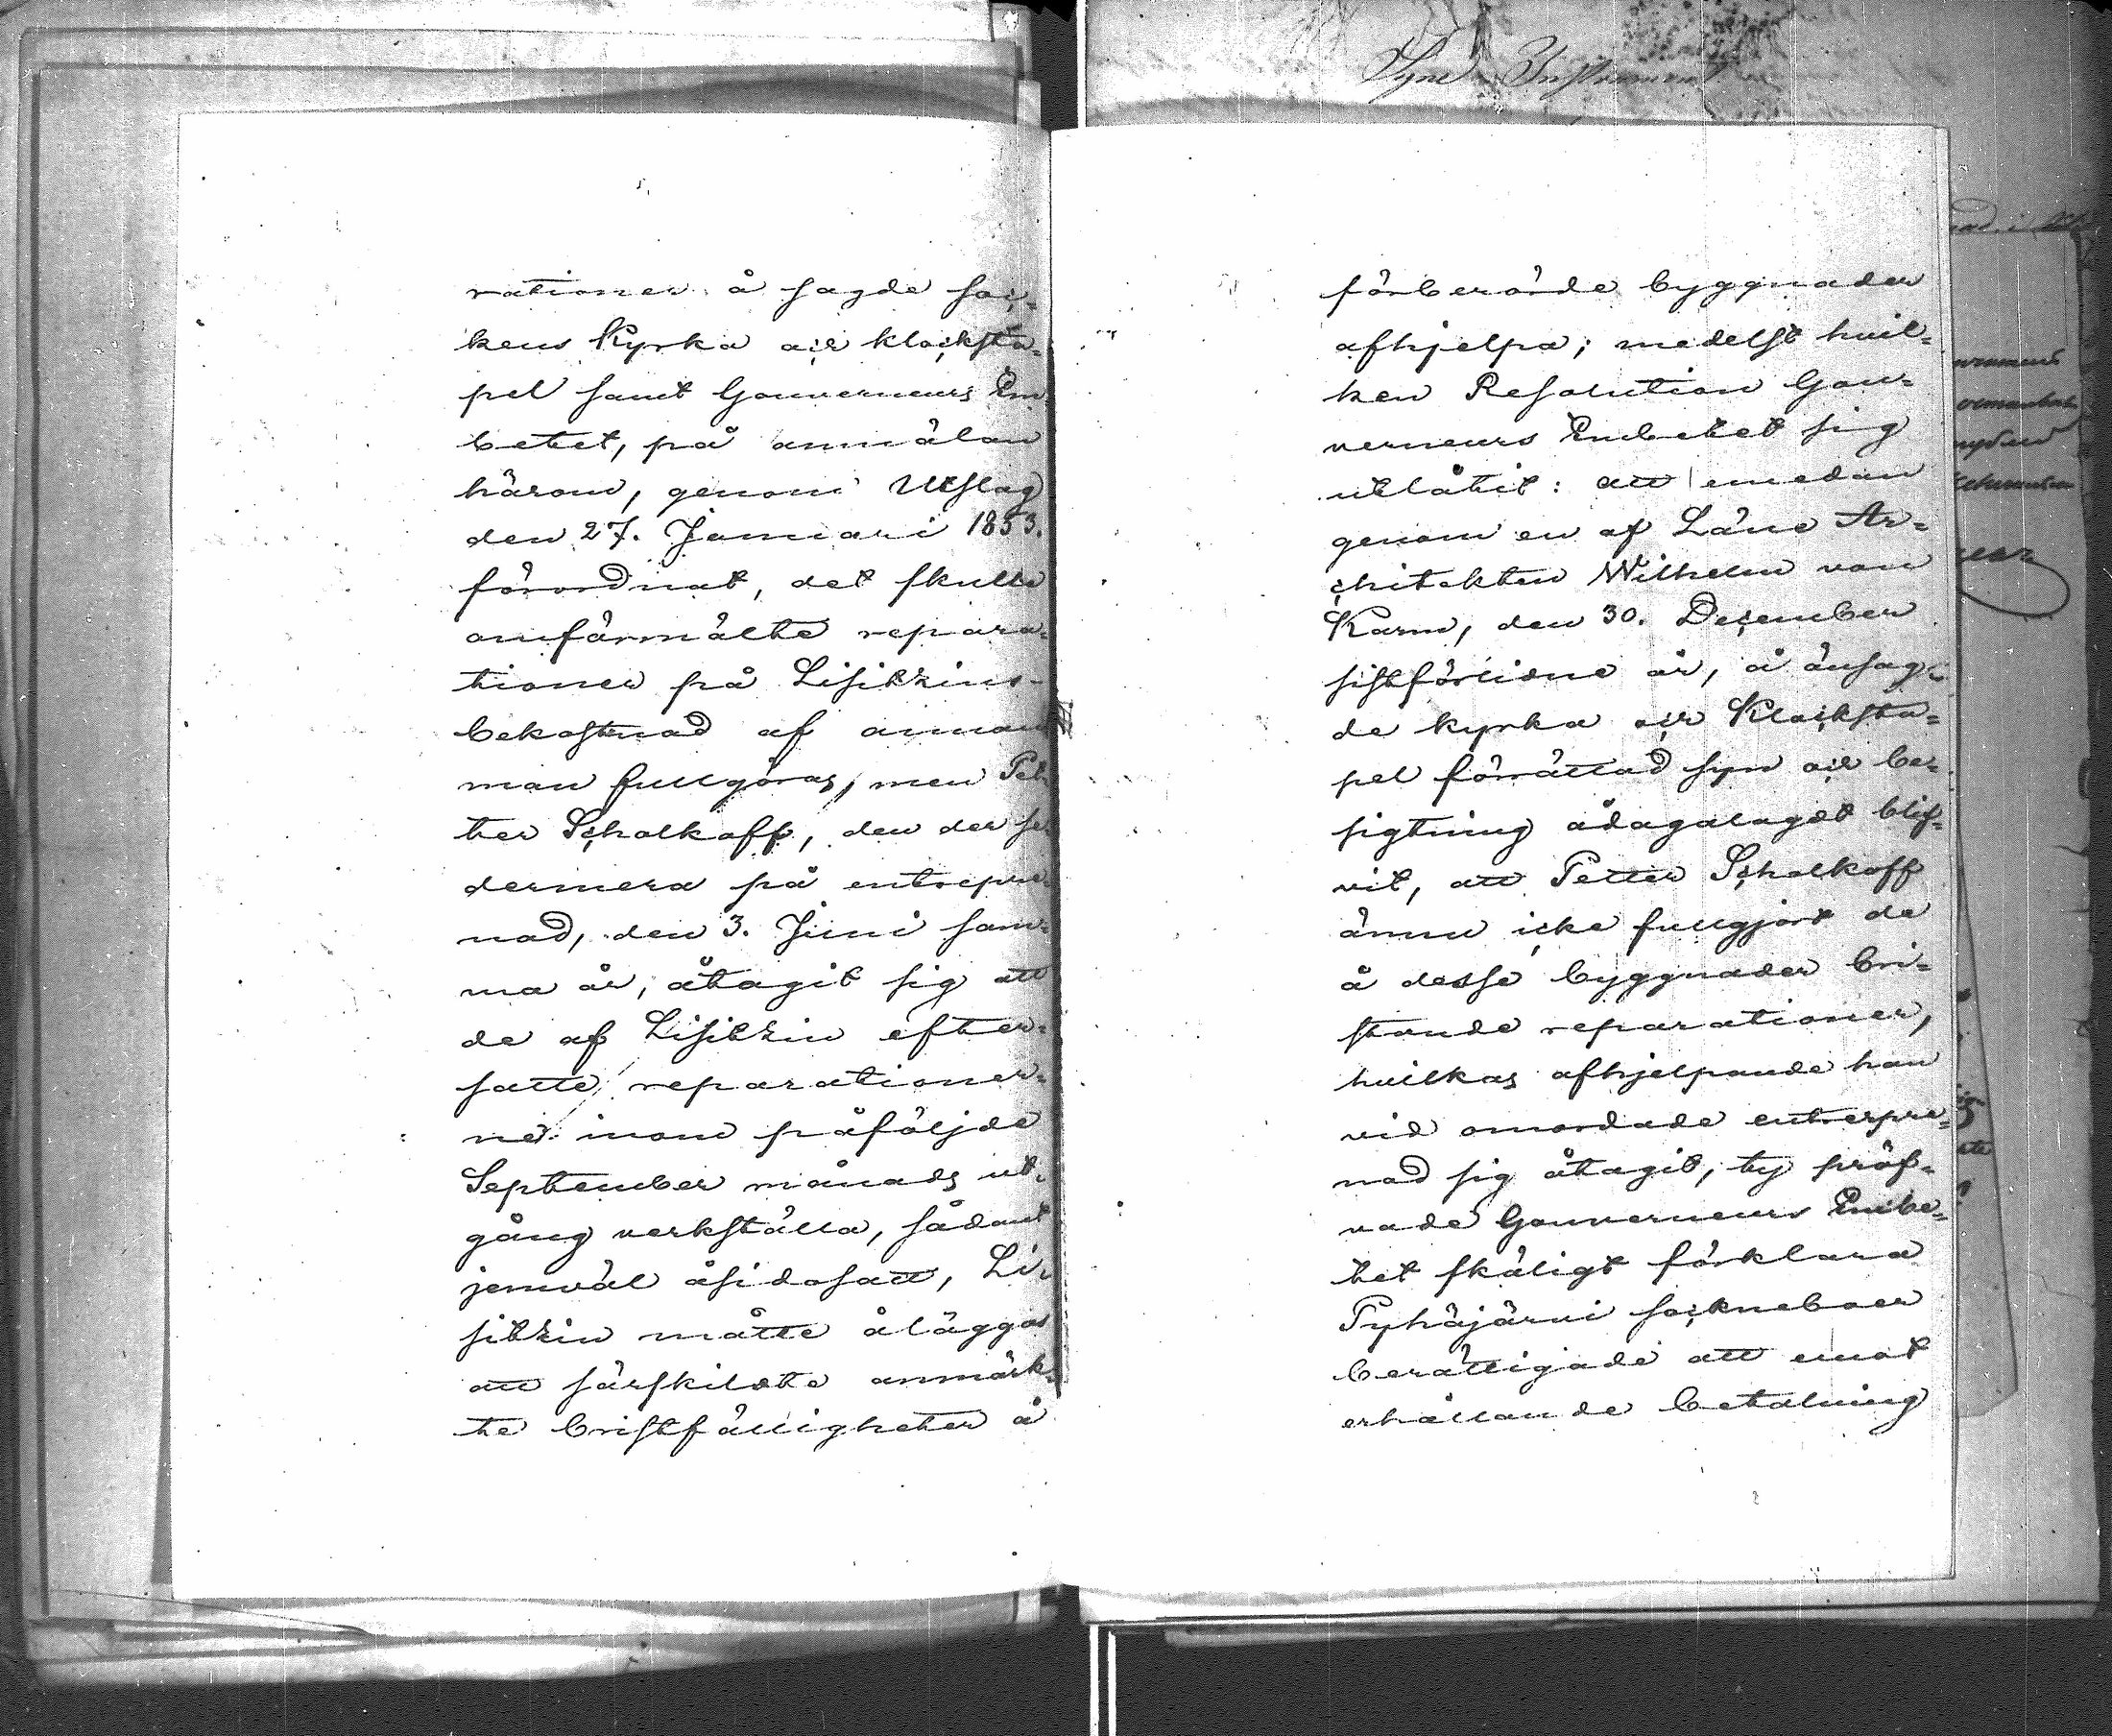 rationer å sagde soc¬
kens Kyrka och klocksta¬
pel samt Gouverneurs Em
betet, på anmälan
härom, genom Utslag
den 27. Januari 1853.
förordnat, det skulle
omförmälte repara¬
tioner på Lisitzins
bekostnad af annan
man fullgöras, men Pet¬
ter Schalkoff, den der se¬
dermera på entrepre¬
nad, den 3. Juni sam¬
ma år, åtagit sig att
de af Lisitzin efter¬
satte reparationer¬
ne inom påföljde
September månads ut¬
gång verkställa, sådant
jemväl åsidosatt, Li¬
sitzin måtte åläggas
att särskildte anmärk¬
te bristfälligheter å
Syne Instrument
förberörde byggnader
afhjelpa; medelst hvil¬
ken Resolution Gou¬
verneurs Embetet sig
utlåtit: att emedan
genom en af Läne Ar¬
chitekten Wilhelm von
Karm, den 30. December
sistförlidne år, å änsag¬
de kyrka och Klocksta¬
pel förrättad syn och be¬
sigtning ådagalagdt blif¬
vit, att Petter Schalkoff
ännu icke fullgjort de
å desse byggnader bri¬
stande reparationer,
hvilkas afhjelpande han
vid omordade entrepre¬
nad sig åtagit, ty pröf¬
vade Gouverneurs Embe¬
tet skäligt förklara
Pyhäjärvi sockneboer
berättigade att emot
erhållande betalning